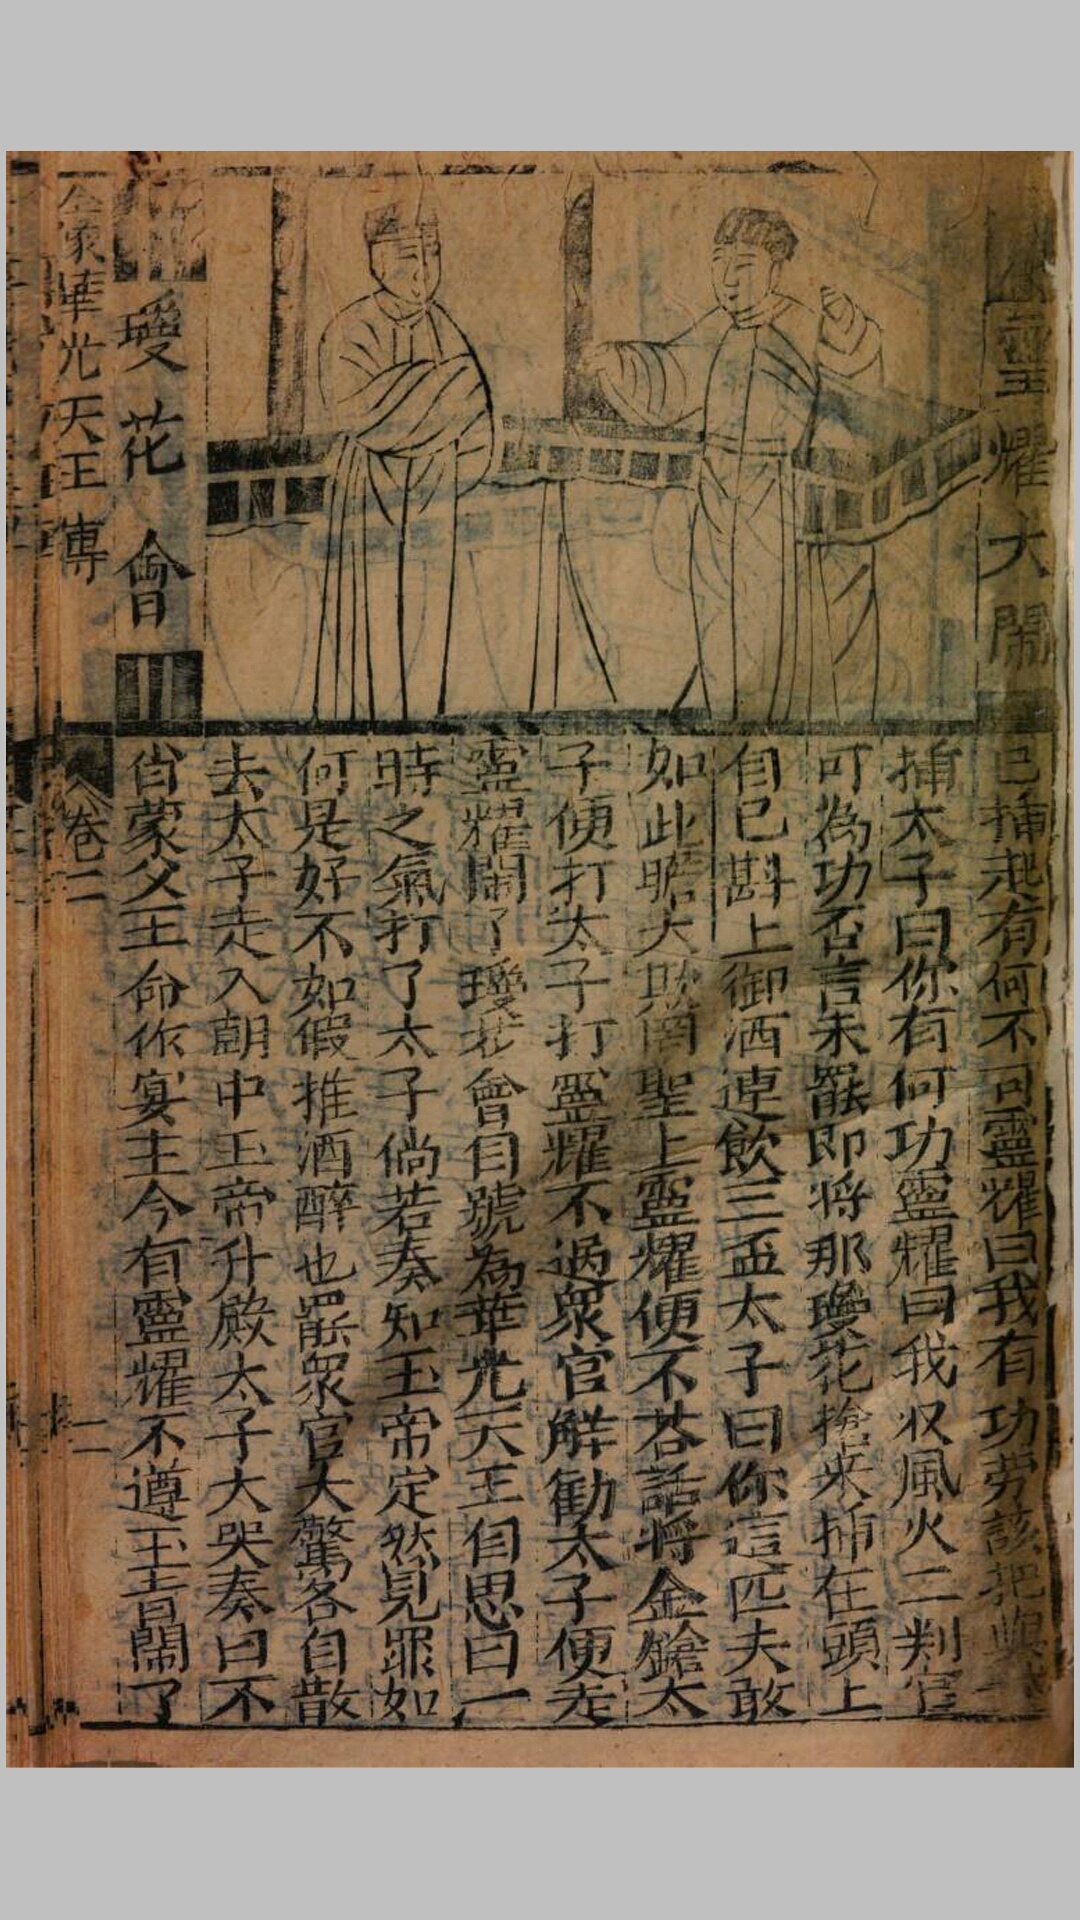 靈耀大鬧
瓊花會
已揷起有何不可靈耀曰我有功勞該把與
揷太子曰你有何功靈耀曰我収風火二判官
可為功否言未罷即将那瓊花搶来揷在頭上
自已斟上御酒連飲三盃太子曰你這匹夫敢
如此瞻大欺罔聖上靈耀便不荅話将金鎗太
子便打太子打靈耀不過衆官觧勸太子便走
靈耀鬧了瓊花會自號為華光天王自思曰一
時之氣打了太子倘若奏知玉帝定然見罪如
何是好不如假推酒醉也罷衆官大驚各自散
去太子走入朝中玉帝升殿太子大哭奏曰不
肖蒙父王命作宴主今有靈耀不遵玉旨鬧了
全像華光天王傳
卷二
二